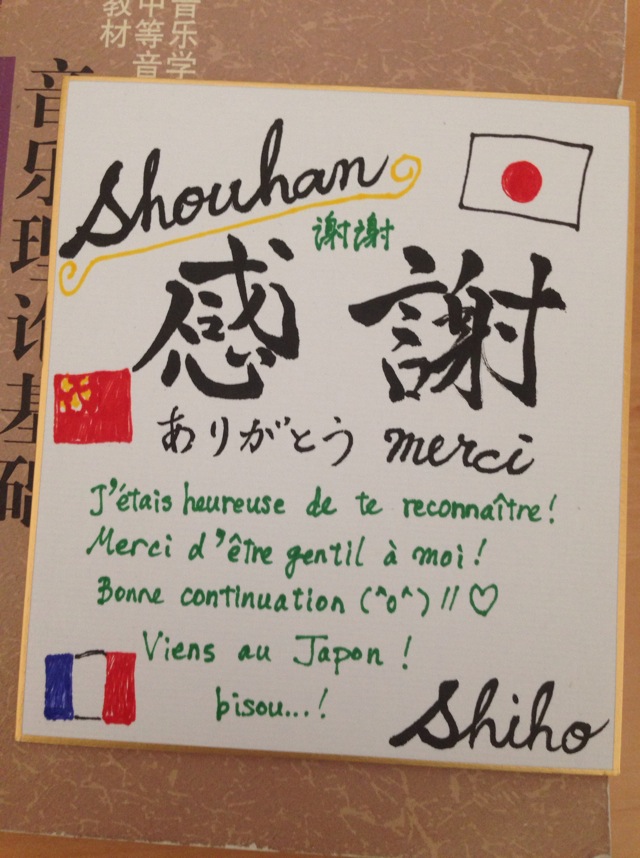 音乐学
中等音
教材
音乐理论基础
Shouhan
謝謝
感謝
ありがとう merci
J'étais heureuse de te reconnaître!
Merci d'être gentil à moi!
Bonne continuation (^o^)!!♡
Viens au Japon!
bisou...!
Shiho